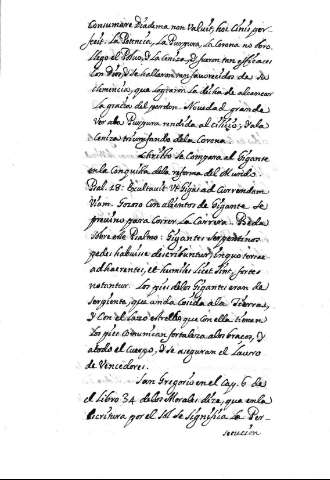 Consumare Diadema non Valuit, hoc Cinis per-
fecit. La Potencia, La Purpura, la Corona no obro
llego el Polvo, y la Ceniza, y fueron tan efficaces
con Dios, que se hallaron tan favorecidos de su
Clemencia, que lograron la dicha de alcanzar
la gracia del perdon. Novedad grande
Ver a la Purpura rendida al cilicio; y a la
Ceniza triumfando de la Corona.
Christo se compara al Gigante
en la Conquista de la reforma del Mundo.
Psal. 18: Exultavit Ut Gigas ad Currendam
Viam. Gozoso con alientos de Gigante se
previno para Correr la Carrera. Beda
sobre este Psalmo: Gigantes serpentinos
pedes habuisse describuntur, inquo terrae
adhaerentes, et humiles licet sint, fortes
notantur. Los pies de los Gigantes eran de
serpiente, que anda Cosida a la Tierra,
y Con el lazo estrecho que con ella tienen
los pies comunican fortaleza a los brazos, y
a todo el Cuerpo, y se aseguran el lauro
de Vencedores.
San Gregorio en el Cap. 6 de
el Libro 34 de los Morales dize, que en la
Escritura por el Sol se significa la Per-
secucion